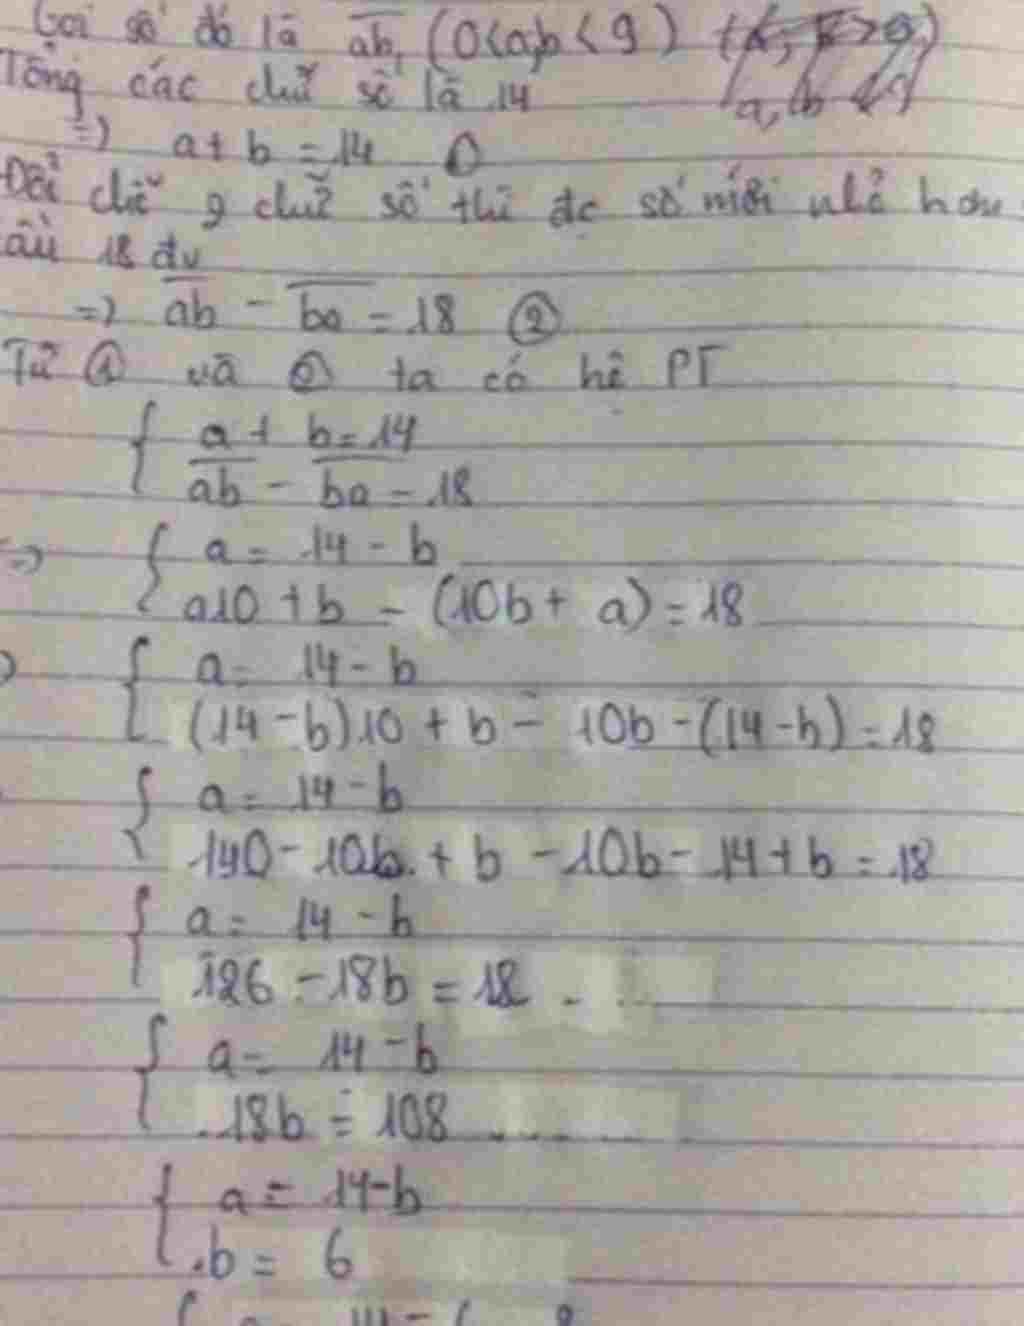 Gọi số đó là ab, (0<a,b<9)
a, b
Tổng các chữ số là 14
=> a + b = 14 ①
Đổi chữ 2 chữ số thì đc số mới nhỏ hơn
18 đv
=> ab - ba = 18 ②
Từ ① và ② ta có hệ PT
{ a + b = 14
ab - ba = 18
=> { a = 14 - b
a10 + b - (10b + a) = 18
{ a = 14 - b
(14 - b)10 + b - 10b - (14 - b) = 18
{ a = 14 - b
140 - 10b + b - 10b - 14 + b = 18
{ a = 14 - b
126 - 18b = 18
{ a = 14 - b
18b = 108
{ a = 14 - b
b = 6